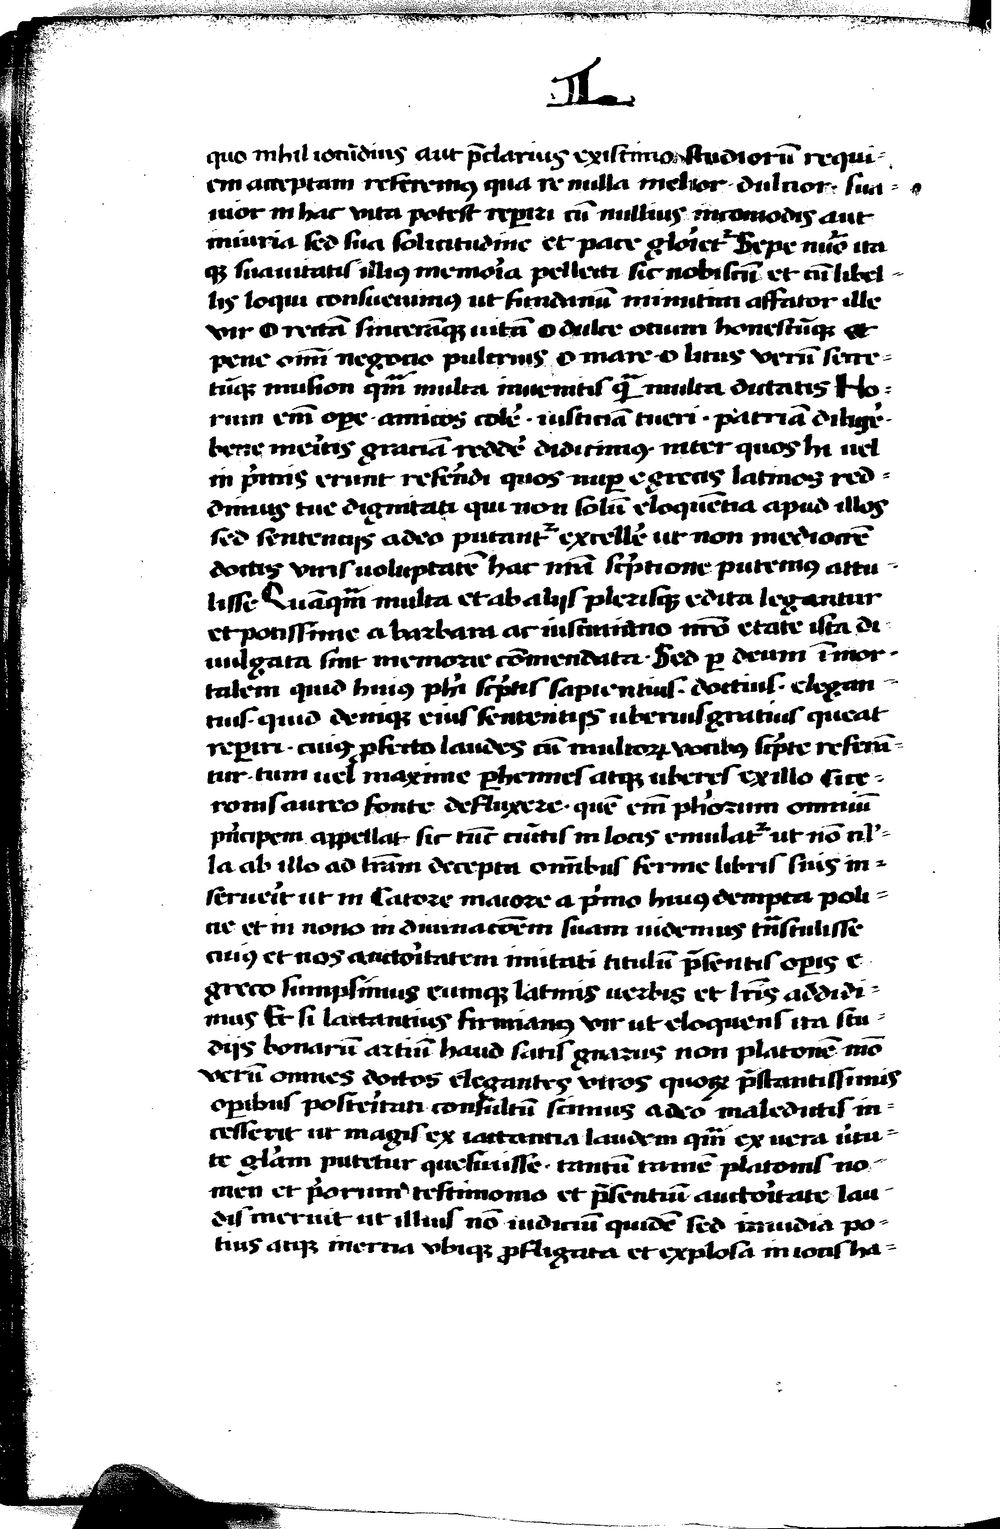 II
quo nihil iocūdius aut p̄clarius existimo studiorū requi-
em acceptam referemꝰ qua re nulla melior dulcior sua-
uior in hac vita potest reꝑiri cū nullius incomodis aut
iniuria sed sua solicitudine et pace gloriet᷑ Sepe nūc̄ ita
qꝫ suauitatis illiꝰ memoria pellecti sic nobiscū et cū libel-
lis loqui consueuimꝰ ut fundanū minutiū affator ille
vir O rectā sincerāqꝫ uitā o dulce otium honestūqꝫ et
pene om̄i negocio pulcrius o mare o litus verū secre-
tūqꝫ musion qm̄ multa inuenitis qm̄ multa dictatis Ho-
rum em̄ oꝑe amicos colē᷑ iusticiā tueri patriā diligē᷑
bene meritis graciā reddē᷑ didicimꝰ inter quos hi uel
in p̄mis erunt referendi quos nuꝑ e grecis latinos red-
dimus tue dignitati qui non solū eloquētia apud illos
sed sentencijs adeo putant᷑ excellē᷑ ut non mediocrē
doctis viris uoluptatē hac nr̄a sc̄ptione putemꝰ attu-
lisse Quāqm̄ multa et ab alijs plerisqꝫ edita legantur
et potissime a barbara ac iustiniano nr̄o etate ista di
uulgata sint memorie cōmendata Sed ꝑ deum īmor-
talem quid huiꝰ ph̄i sc̄ptis sapientius doctius elegan-
tius quid deniqꝫ eius sententijs uberius gratius queat
reꝑiri cuiꝰ ꝓfecto laudes cū multoꝝ vocibꝰ sc̄pte referā-
tur tum uel maxime ꝑhennes atqꝫ uberes ex illo Cice-
ronis aureo fonte defluxere quē em̄ ph̄orum omniū
principem appellat sic tūc cūctis in locis emulat᷑ ut nō nl̄-
la ab illo ad lr̄am decepta om̄ibus ferme libris suis in-
seruerit ut in Catore maiore a p̄mo huiꝰ dempta poli-
cie et in nono in diuinacōem suam uidemus tn̄stulisse
cuiꝰ et nos auctoritatem imitati titulū p̄sentis oꝑis e
greco sumpsimus eumqꝫ latinis uerbis et lr̄is addidi-
mus Et si lactantius firmianꝰ vir ut eloquens ita stu-
dijs bonarū artiū haud satis gnarus non platonē mō
verū omnes doctos elegantes viros quoqꝫ p̄stantissimis
oꝑibus posteritati consultū scimus adeo maledictis in-
cesserit ut magis ex iactantia laudem qm̄ ex uera uirtu-
te glām putetur quesiuisse tantū tamē platonis no-
men et p̄orum testimonio et p̄sentiū auctoritate lau-
dis meruit ut illius nō iudiciū quidē sed inuidia po-
tius atqꝫ inertia vbiqꝫ ꝓfligata et explosa in ious ha-